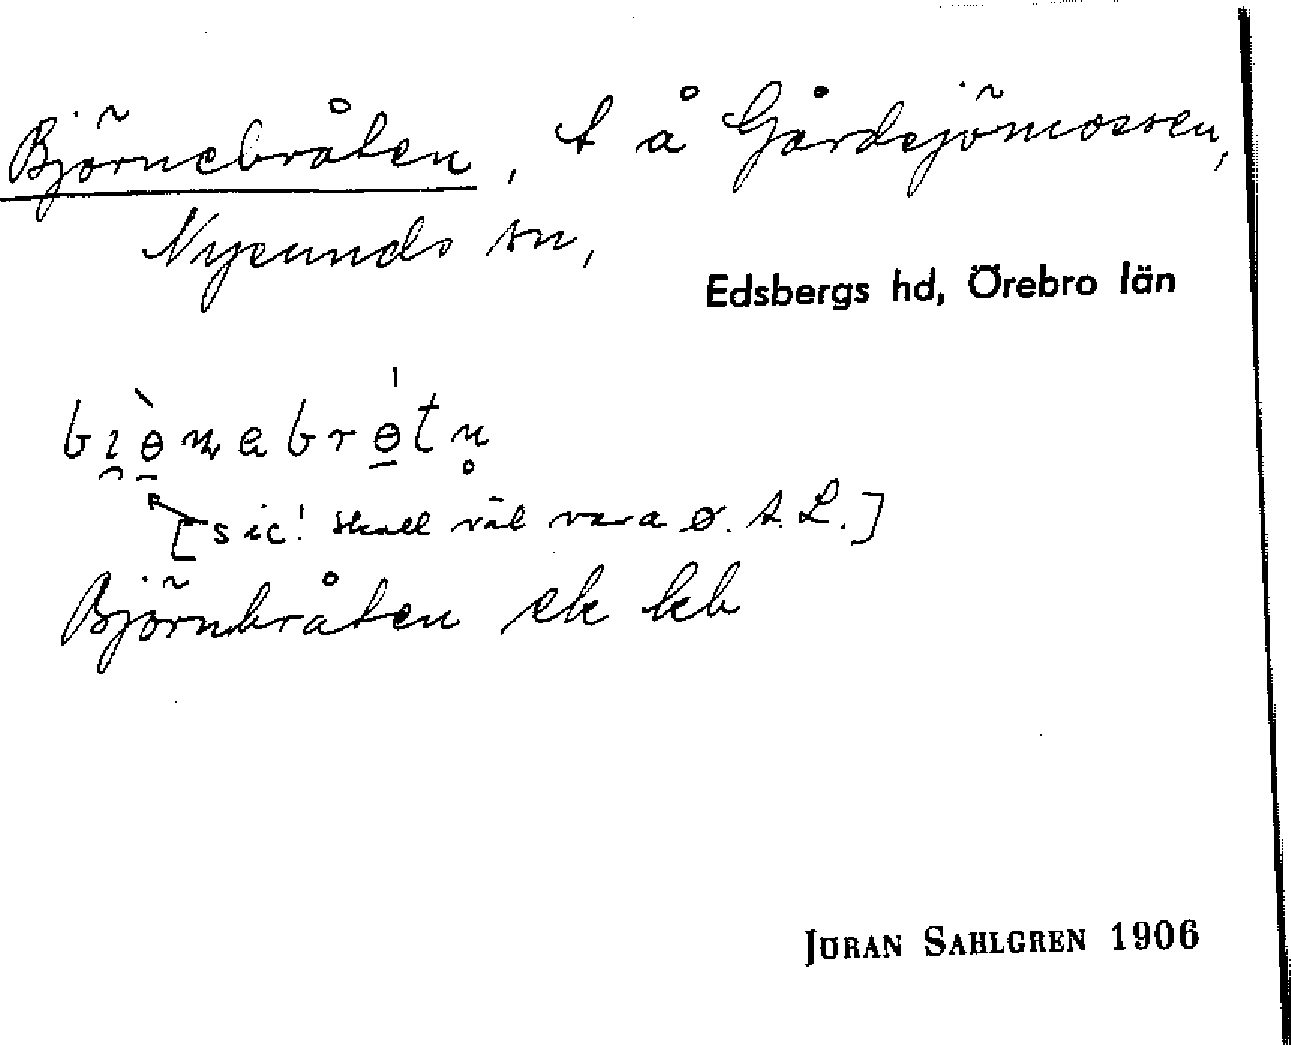 Björnebråten, t å Gårdsjömossen,
Nysunds sn,
Edsbergs hd, Örebro län
[sic! skall väl vara ø. S. L.]
Björnbråten ek kb
JÖRAN SAHLGREN 1906